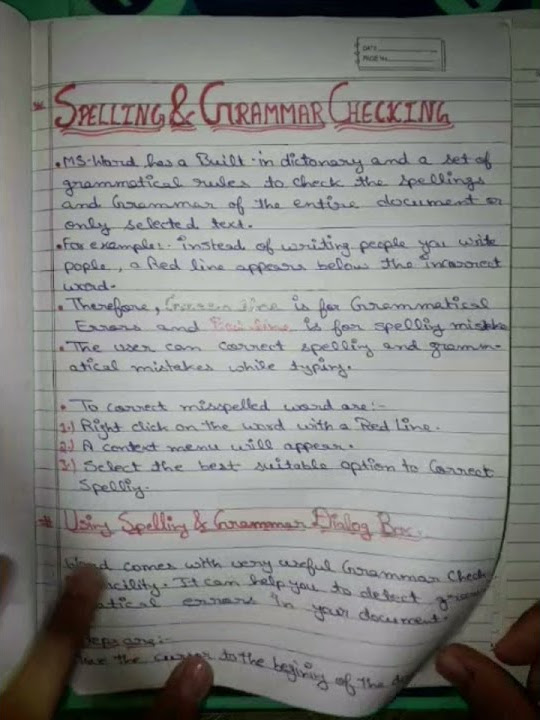 DATE
PAGE No.
* SPELLING & GRAMMAR CHECKING
• MS-Word has a Built-in dictonary and a set of
grammatical rules to check the spellings
and Grammar of the entire document or
only selected text.
• For example:- instead of writing people you write
pople, a Red line appears below the incorrect
word.
• Therefore, Green line is for Grammatical
Errors and Red line is for spelliy mistke
• The user can correct spelliy and gramm-
atical mistakes while typing.
• To correct misspelled word are:-
1.) Right click on the word with a Red Line.
2.) A context menu will appear.
3.) Select the best suitable option to Correct
Spelliy.
# Using Spelliy & Grammar Dialog Box.
Word comes with very useful Grammar Check
facility. It can help you to detect
errors in your document.
are:-
the cursor to the beginiy of the